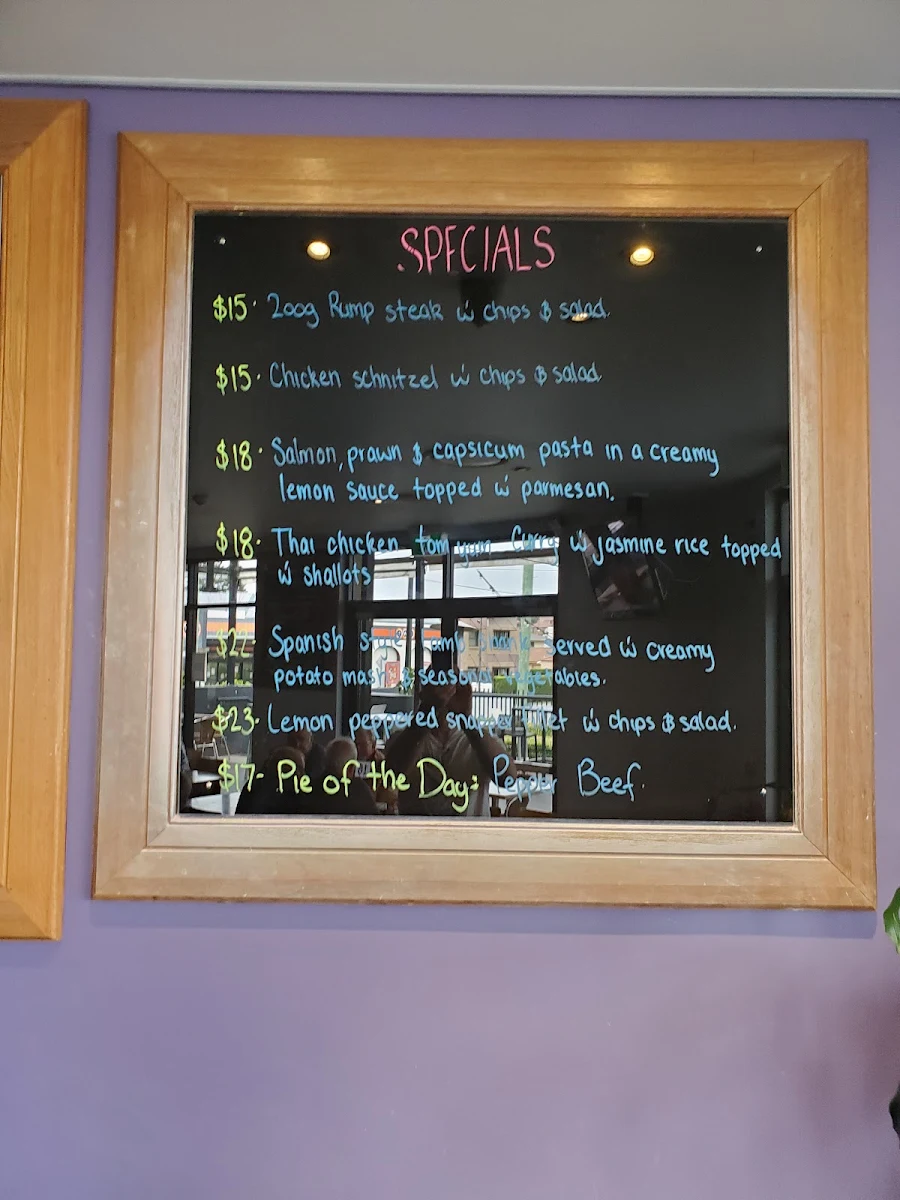 SPECIALS
$15· 200g Rump steak w chips & salad.
$15· Chicken schnitzel w chips & salad.
$18· Salmon, prawn & capsicum pasta in a creamy
lemon sauce topped w parmesan.
$18· Thai chicken tom yum curry w jasmine rice topped
w shallots
Spanish style lamb served w creamy
potato mash & seasonal vegetables.
$23· Lemon peppered snapper fillet w chips & salad.
$17- Pie of the Day: Pepper Beef.